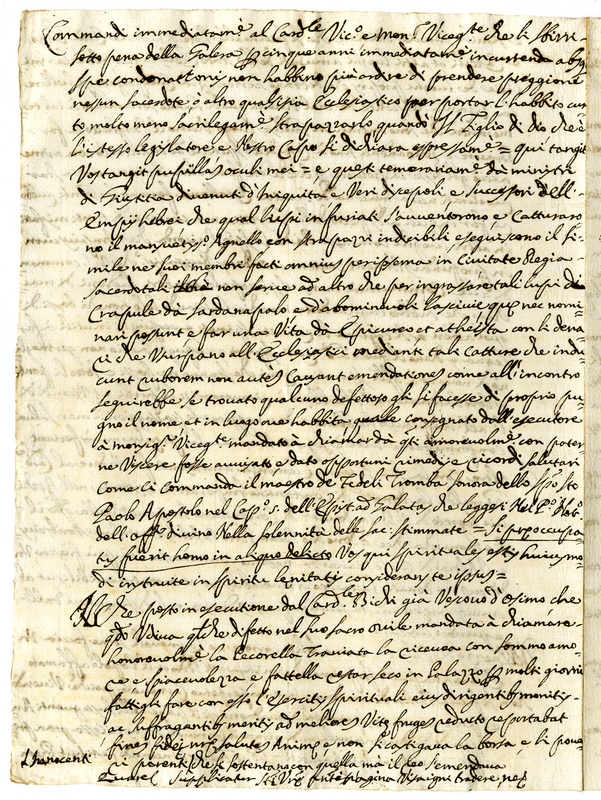 Commandi immediatam.e al Card.le Vic.o e Mon.r Viceg.te che li sbirri
sotto pena della Galera per cinque anni immediatam.e incurrenda absq
spe condonationi non habbino più ardire di prendere preggione
nessun sacerdote ò altro qualsisia Eclesiastico per portar l'habbito cur
to molto meno sacrilegam.e strapazzarlo quando Il Figlio di dio che è
l'istesso legislatore e Nostro Capo si dichiara espressam.e = qui tangit
Vos tangit pupillas oculi mei = e questi temerariam.e dà ministri
di Giustitia divenuti d'Iniquita e Veri discepoli e successori dell
Empij hebrei che qual lupi infuriati s'avventorono e Catturaro
no il mansuetis.o Agnello con strapazzi indicibili e seguiscono il si
mile ne suoi membri facti omnium peripsema in Civitate Regia
sacerdotali non serve ad altro che per ingrassare tali lupi di
Crapule dà sardanapalo e d'abominevoli lascivie que nec nomi
nari possunt e far una Vita dà Epicureo et atheista con li dena
ri che Usurpano all Eclesiastici mediante tali catture che indu
cunt ruborem non autem Causant emendationes come all'incontro
seguirebbe se trovato qualcuno defettoso gli si facesse di proprio pu
gno il nome et in luogo ove habbita consegnato dall'esecutore
à monsig.r Viceg.te mandato à chiamar dà q.ti amorevolm.e con pater
ne Viscere fosse avvisato e dato opportuni rimedij e ricordi salutari
Come ci Commanda il maestro de Fedeli Tromba sonora dello Sp.o S.to
Paolo Apostolo nel Cap.o s. dell'Epist. ad Galatas che leggesi Nel P.o Nott.o
dell'off.o divino Nella solennità delle sac. stimmate = si preoccupa
tus fuerit homo in aliquo delicto Vos qui spirituales estis huiusmo
di instruite in spiritu lenitatis considerans te ipsum =
Il che posto in esecutione dal Card.le Bichi già Vescovo d'Osimo che
q.do Udiva q.lche difetto nel suo sacro ovile mandata à chiamare
honorevolm.e la Pecorella Traviata la riceveva con sommo amo
re e piacevolezza e fattella restar seco in Palazzo per molti giorni
fattigli fare con esso l'esercitij spirituali eius dirigentib meritis
ac suffragantib meritis ad meliores Vite fruges reducto reportabat
finem fidei n.re salutem Anime e non si castigava la borsa e li pove
L'Innocenti ri parenti che si sostentano con quella mà il reo s'emendava
Quare supplicatur